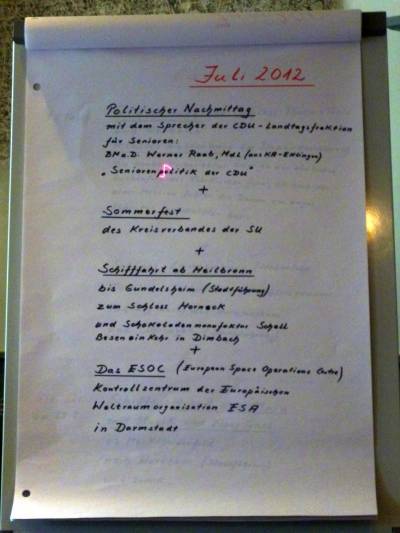 Juli 2012
Politischer Nachmittag
mit dem Sprecher der CDU-Landtagsfraktion
für Senioren:
BM a.D. Werner Raab, MdL (aus KA-Ettlingen)
"Seniorenpolitik der CDU"
+
Sommerfest
des Kreisverbandes der SU
+
Schifffahrt ab Heilbronn
bis Gundelsheim (Stadtführung)
zum Schloss Horneck
und Schokoladenmanufaktur Schell
Beseneinkehr in Dimbach
+
Das ESOC (European Space Operations Centre)
Kontrollzentrum der Europäischen
Weltraumorganisation ESA
in Darmstadt